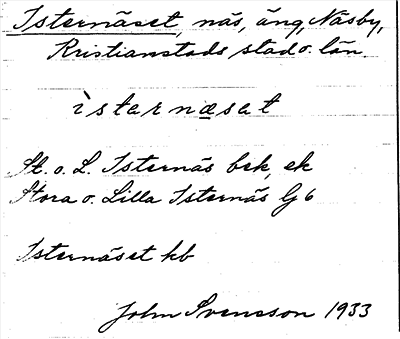 Isternäset, näs, äng, Näsby,
Kristianstads stad o. län
ìsternæset
St. o. L. Isternäs bek, ek
Stora o. Lilla Isternäs G 6
Isternäset kb
John Svensson 1933